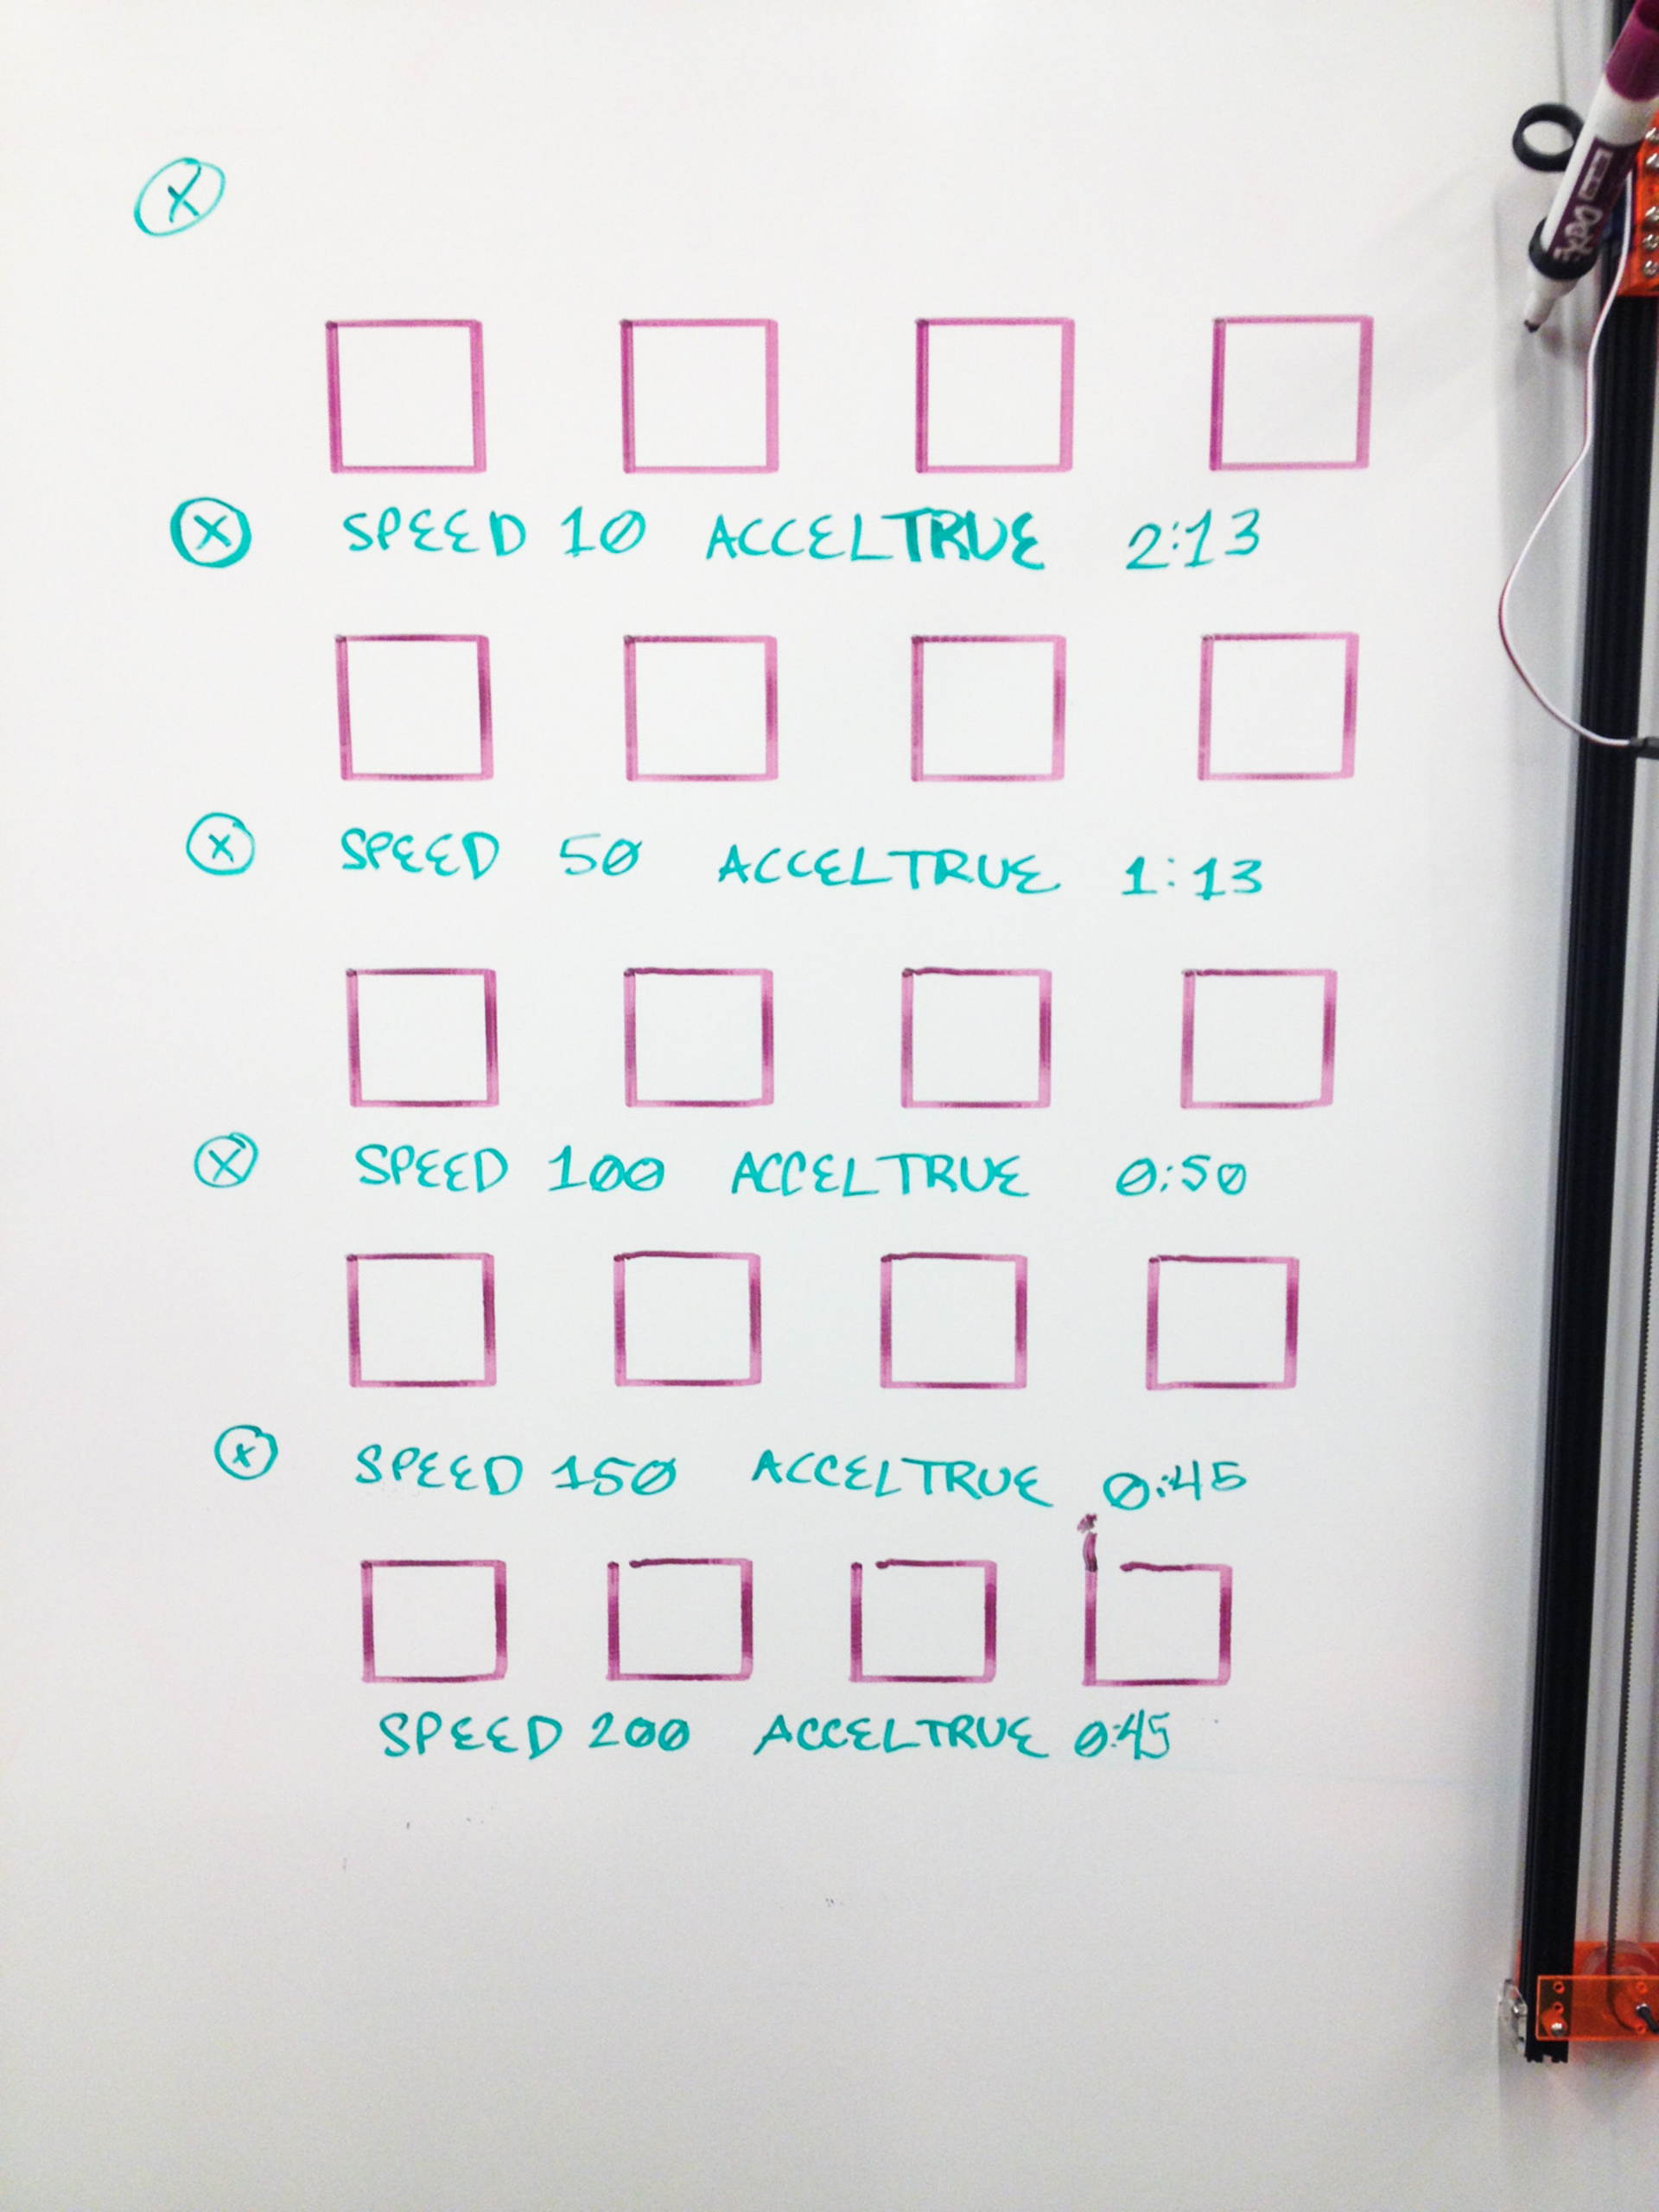 X
X SPEED 10 ACCEL TRUE 2:13
X SPEED 50 ACCEL TRUE 1:13
X SPEED 100 ACCEL TRUE 0:50
X SPEED 150 ACCEL TRUE 0:45
SPEED 200 ACCEL TRUE 0:45